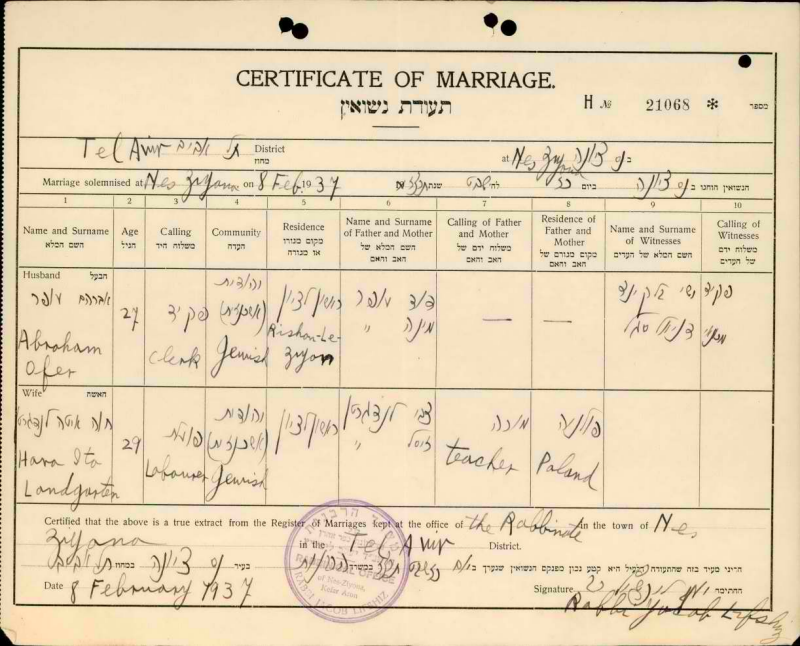 CERTIFICATE OF MARRIAGE.
תעודת נשואין
H № 21068 * מספר
Tel Aviv תל אביב District מחוז at Nes Ziyona בנס ציונה
Marriage solemnised at Nes Ziyona on 8 Feb. 1937 הנשואין הוגנו בנס ציונה ביום כז לח' שבט שנת תרצ"ז
1 2 3 4 5 6 7 8 9 10
Name and Surname השם המלא
Age הגיל
Calling משלוח היד
Community העדה
Residence מקום מגורו או מגורה
Name and Surname of Father and Mother השם המלא של האב והאם
Calling of Father and Mother משלוח ידם של האב והאם
Residence of Father and Mother מקום מגורם של האב והאם
Name and Surname of Witnesses השם המלא של העדים
Calling of Witnesses משלוח ידם של העדים
Husband הבעל
אברהם עופר
Abraham Ofer
27
פקיד
Clerk
יהודית (אשכנזית)
Jewish
ראשון לציון
Rishon-Le-Ziyon
דוד עופר
מינה "
—
—
דניאל סגל
פקיד
Wife האשה
חוה איטה לנדגרטן
Hava Ita Landgarten
29
פועלת
Labourer
יהודית (אשכנזית)
Jewish
ראשון לציון
צבי לנדגרטן
זיסל "
מורה
teacher
פולניה
Poland
Certified that the above is a true extract from the Register of Marriages kept at the office of the Rabbinate in the town of Nes
Ziyona in the Tel Aviv District.
הריני מעיד בזה שהתעודה הנ"ל היא קטע נכון מפנקס הנשואין שנערך
בעיר נס ציונה במחוז תל אביב
Date 8 February 1937 Signature החתימה
Rabbi Jacob Lifshiz
RABBI'S OFFICE
of Nes-Ziyona,
RABBI JACOB LIFSHIZ